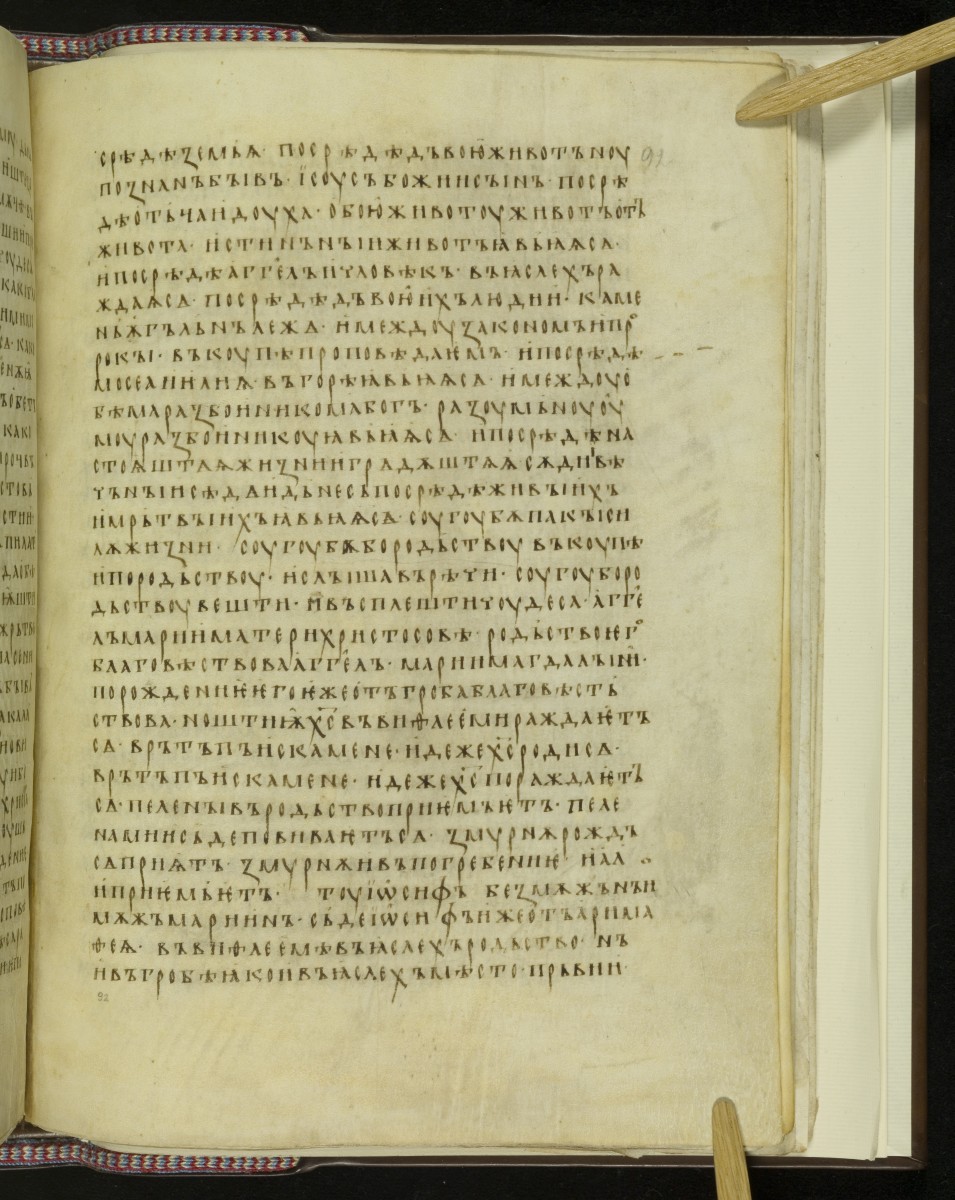 срѣдѣꙁемьѩ· посрѣдѣдъвоюживотъноу 91
поꙁнанъбꙑвъ· їсоусъбожиисꙑнъ· посрѣ
дѣотьчаидоуха· обоюживотоуживотъотъ
живота· истинънꙑиживотъꙗвьꙗѧсѧ·
ипосрѣдѣаггелъичловѣкъ· въꙗслехъра
ждаѧсѧ· посрѣдѣдъвоюихълюдии· каме
ньѫгъльнълежѧ· имеждоуꙁакономъипро
рокꙑ· въкоупѣпроповѣдаѥмъ· ипосрѣдѣ
мосеаиилиѩ въгорѣꙗвьꙗѧсѧ· имеждоуо
бѣмараꙁбоиникомабогъ· раꙁоумьноуоу
моураꙁбоиникоуꙗвьꙗѧсѧ ипосрѣдѣна
стоѩштаѧжиꙁниигрѧдѫштѧѩсѫдивѣ
чънꙑисѣдѧидьнесьпосрѣдѣживꙑихъ
имрьтвꙑихъꙗвьꙗѧсѧ· соугоубѫпакꙑси
лѫжиꙁни· соугоубꙑбородьствоу въкоупѣ
ипородьствоу· ислꙑшавърѣчи· соугоуборо
дьствоувешти· ивъсплештичоудеса· агге
лъмариимaтерихристосовѣ· родьствоѥго
благовѣствовааггелъ· мариимагдалꙑни·
порождениѥѥгоиѥжеотъгробаблаговѣсть
ствова· ноштиѭх҃съвъвиѳлеемираждаѥтъ
сѧ· врътъпъискамене· идежех҃сродисѧ·
врътъпъискамене· идежех҃спораждаѥтъ
сѧ· пеленꙑвъродьствоприѥмьѥтъ· пеле
намиисьдеповиваѥтъсѧ· ꙁмурнѫрождь
сѧприѩтъ· ꙁмурнѫивъпогребениѥ иал
иприѥмьѥтъ· тоуиѡсифъ беꙁмѫжънъи
мѫжъмариинъ· сьдеиѡсифъижеотъаримa
ѳеѩ· въвиѳлеемѣвъꙗслехъродьство· нъ
ивъгробѣꙗкоивъꙗслехъмѣсто· прьвии·
92